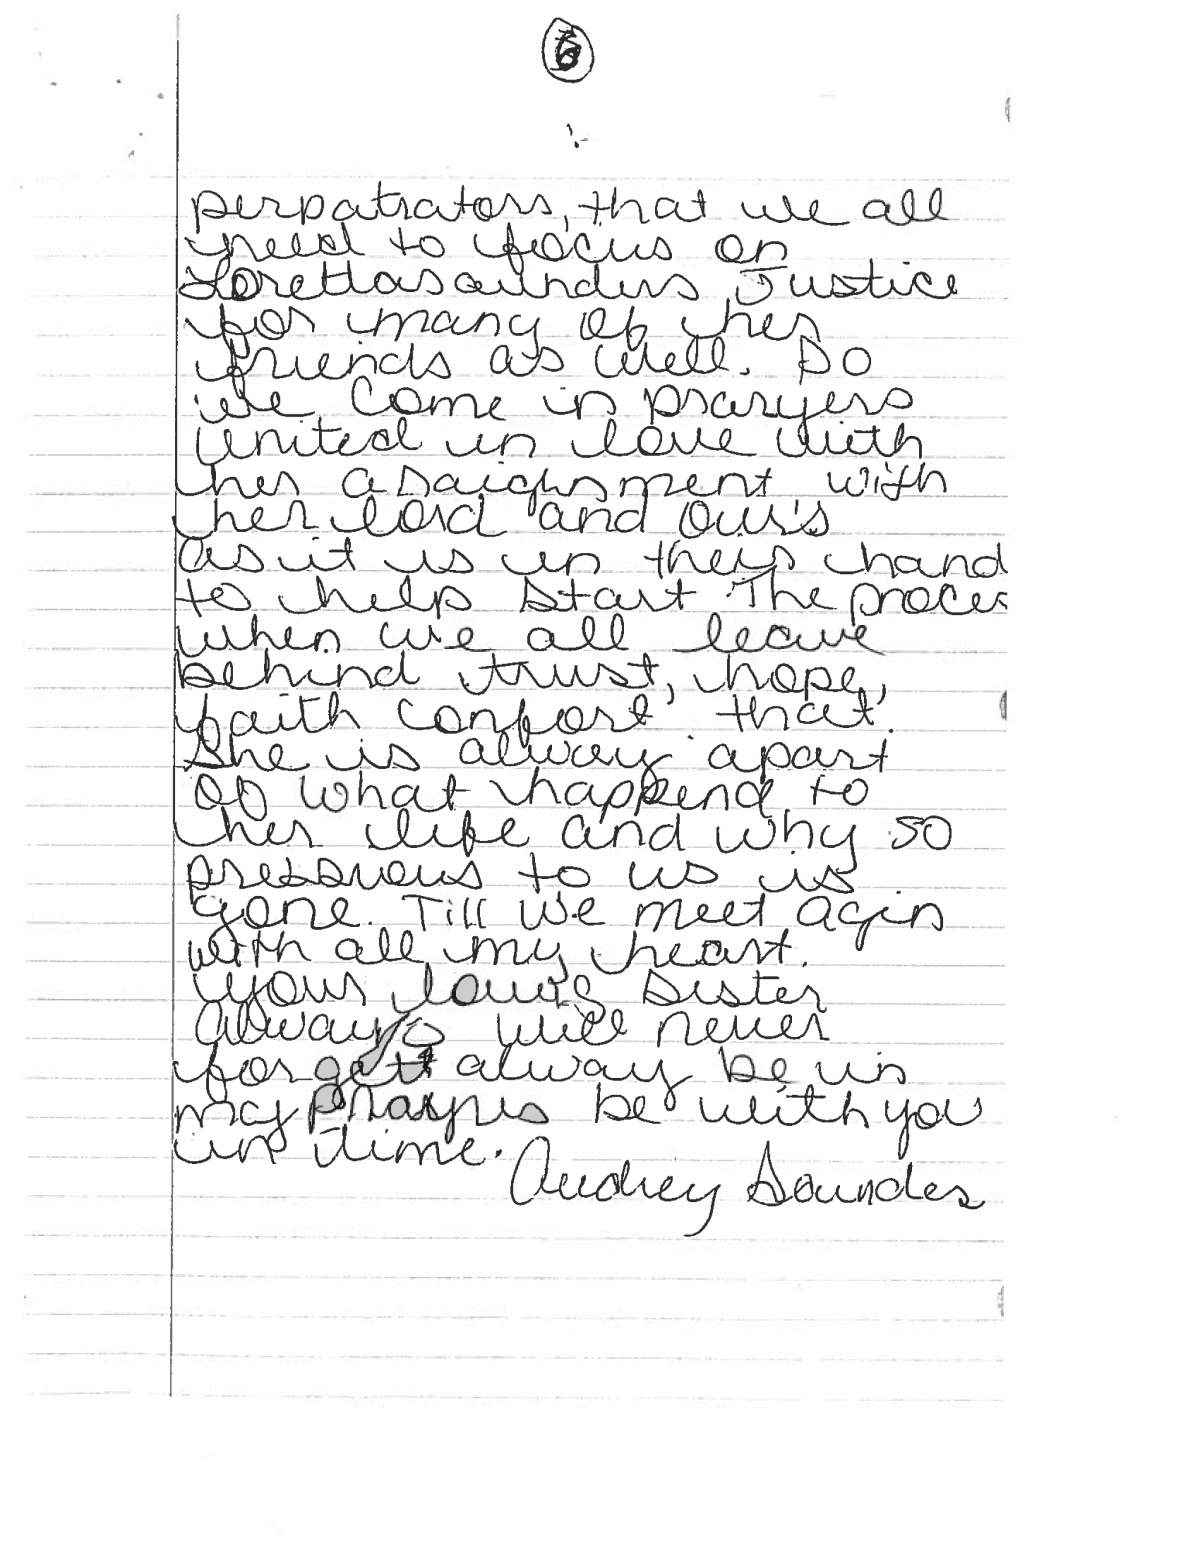 6
perpatrators, that we all
need to focus on
Lorettasaunders Justice
for many of her
friends as well. So
we Come in praryers
united in love with
her asaighsment with
her lord and our's
as it is in their hand
to help start The proces
when we all leave
behind trust, hope,
faith confort that
She is alway apart
of what happend to
her life and why so
pressuous to us is
gone. Till we meet agin
with all my heart.
your loving sister
always will never
forget alway be in
my prayrs be with you
in time.
Audrey Saundes